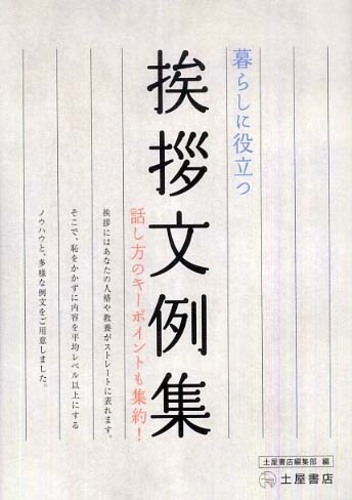 暮らしに役立つ
挨拶文例集
話し方のキーポイントも集約！
挨拶にはあなたの人格や教養がストレートに表れます。
そこで、恥をかかずに内容を平均レベル以上にする
ノウハウと、多様な例文をご用意しました。
土屋書店編集部 編
土屋書店